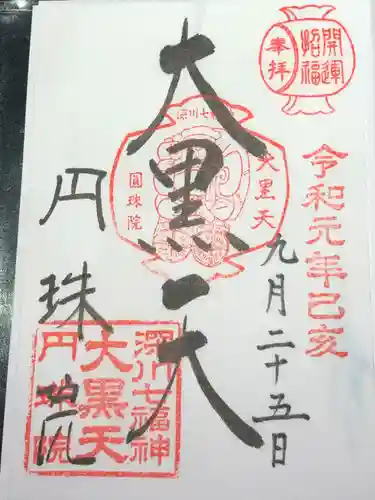 開運
招福
奉拝
令和元年己亥
九月二十五日
大黒天
深川七福神
大黒天
圓珠院
円珠院
深川七福神
大黒天
円珠院